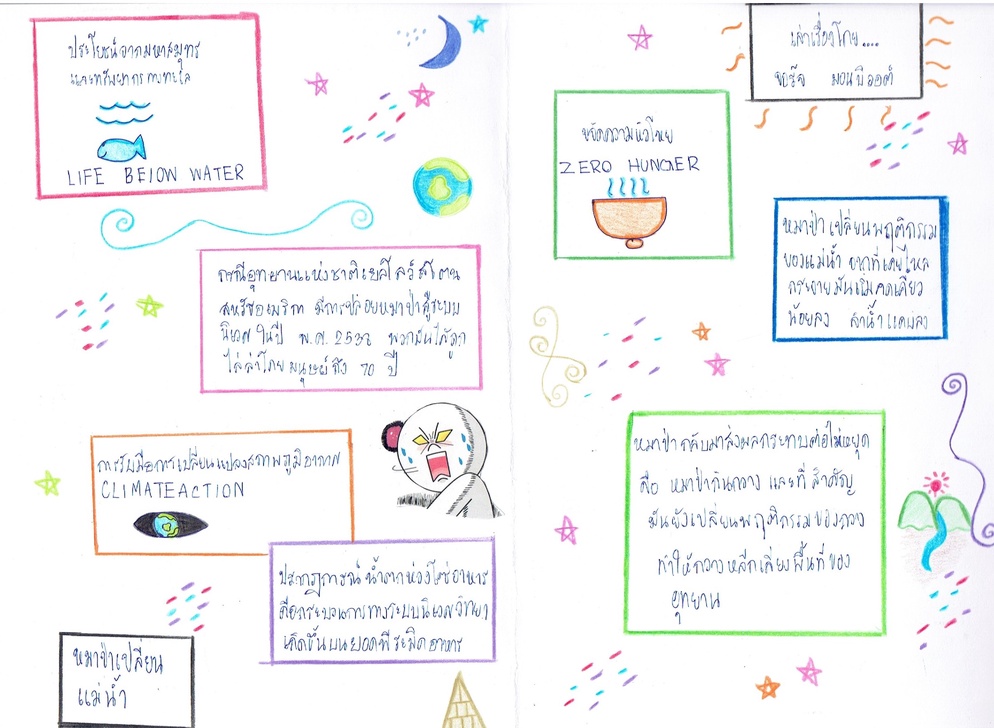 ประโยชน์จากมหาสมุทร
และทรัพยากรทางทะเล
LIFE BElOW WATER
กรณีอุทยานแห่งชาติเยลโลว์สโตน
สหรัฐอเมริกา มีการปล่อยหมาป่าสู่ระบบ
นิเวศ ในปี พ.ศ. 2538 พวกมันได้ถูก
ไล่ล่าโดยมนุษย์ถึง 70 ปี
การรับมือการเปลี่ยนแปลงสภาพภูมิอากาศ
CLIMATEACTION
ปรากฏการณ์น้ำตกห่วงโซ่อาหาร
คือกระบวนการทางระบบนิเวศวิทยา
เกิดขึ้นบนยอดพีระมิดอาหาร
หมาป่าเปลี่ยน
แม่น้ำ
เล่าเรื่องโดย....
จอร์จ มอนบิออต์
ขจัดความหิวโหย
ZERO HUNGER
หมาป่าเปลี่ยนพฤติกรรม
ของแม่น้ำ จากที่เคยไหล
กระจายมันเริ่มคดเคี้ยว
น้อยลง ลำน้ำแคบลง
หมาป่ากลับมาส่งผลกระทบต่อไม่หยุด
คือ หมาป่ากินกวาง และที่สำคัญ
มันยังเปลี่ยนพฤติกรรมของกวาง
ทำให้กวางหลีกเลี่ยงพื้นที่ของ
อุทยาน